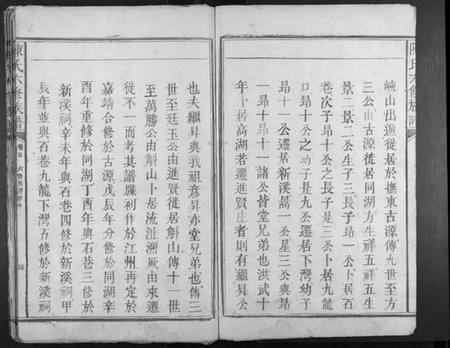 陳氏六修族譜
峽山出進徙居於撫東古源傳九世至方
三公由古源徙居同湖方生祥五祥五生
景二景二公生子三長子昻一公卜居石
巷次子昻十公之長子是三公卜居九龍
口昻十公之幼子是九公遷居下灣幼子
昻十一公遷居新溪景一公星三公與昻
一昻十昻十一諸公皆堂兄弟也洪武十
年卜居高湖若遷進賢庄者則有繼昇公
也夫繼昇與我祖意昇亦堂兄弟也傳三
世至廷玉公由進賢徙居斛山傳十一世
至萬勝公由斛山卜居流沚溯厥由來遷
徙不一而考其譜牒剏作於江州再定於
嘉靖合修於古源戊辰年分修於同湖辛
酉年重修於同湖丁酉年與石巷三修於
新溪祠辛未年與石巷四修於新溪祠甲
辰年並與石巷九龍下灣五修於新溪祠
陳氏六修族譜
四